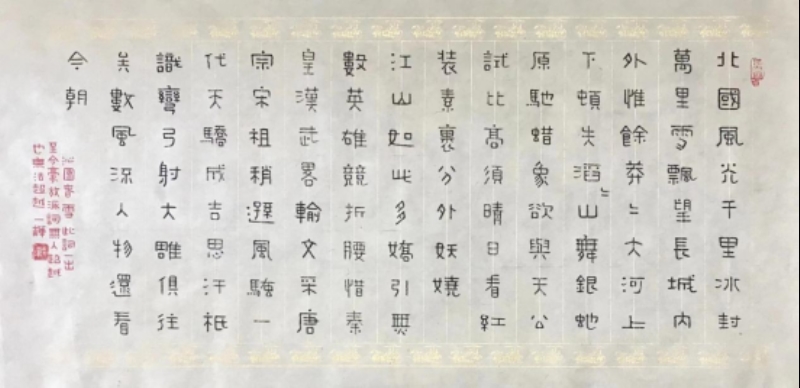 北國風光千里冰封
萬里雪飄望長城內
外惟餘莽〻大河上
下頓失滔〻山舞銀蛇
原馳蜡象欲與天公
試比高須晴日看紅
装素裹分外妖嬈
江山如此多嬌引無
數英雄競折腰惜秦
皇漢武畧輸文采唐
宗宋祖稍遜風騷一
代天驕成吉思汗祗
識彎弓射大雕俱往
矣數風流人物還看
今朝
沁園春雪此詞一出
至今豪放派詞無人超越
也無法超越一譯